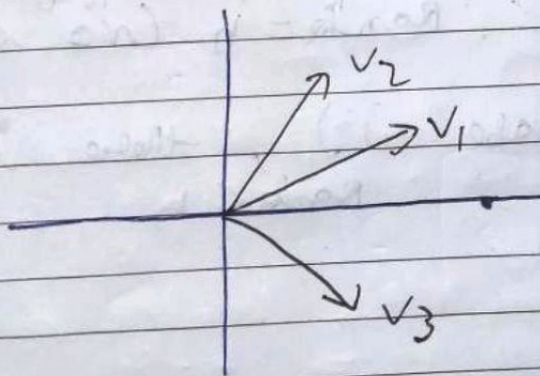 V2
V1
V3